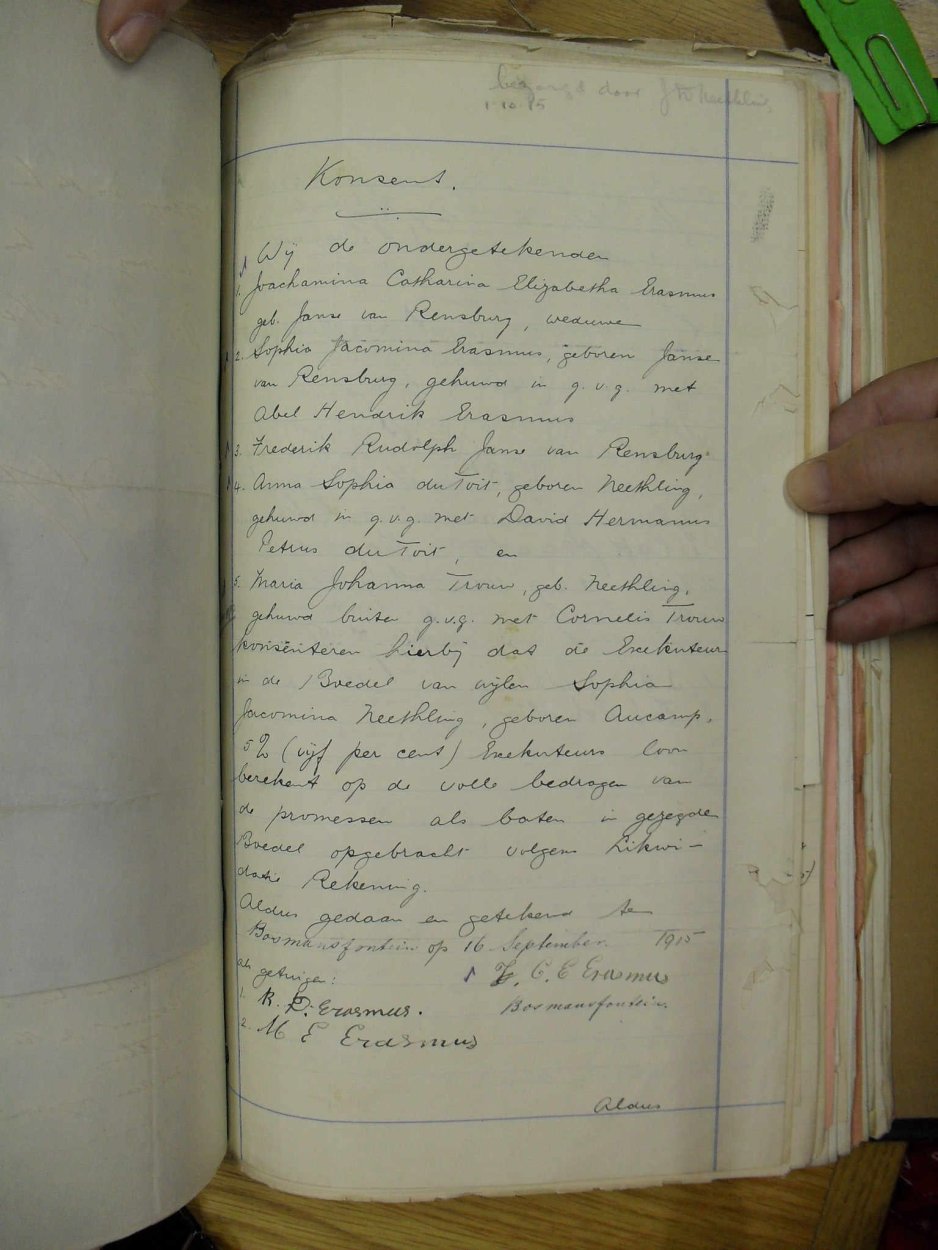 bezorgd door J W Neethling
1·10·15
Konsent.
Wij de ondergetekenden
1. Joachamina Catharina Elizabetha Erasmus
geb. Janse van Rensburg, weduwe
2. Sophia Jacomina Erasmus, geboren Janse
van Rensburg, gehuwd in g.v.g. met
Abel Hendrik Erasmus
3. Frederik Rudolph Janse van Rensburg
4. Anna Sophia du Toit, geboren Neethling,
gehuwd in g.v.g. met David Hermanus
Petrus du Toit, en
5. Maria Johanna Trouw, geb. Neethling,
gehuwd buiten g.v.g. met Cornelis Trouw
konsenteren hierbij dat de Exekuteur
in de Boedel van wijlen Sophia
Jacomina Neethling, geboren Aucamp,
5% (vijf per cent) Exekuteurs loon
berekent op de volle bedragen van
de promessen als baten in gezegde
Boedel opgebracht volgens Likwi-
datie Rekening.
Aldus gedaan en getekend te
Bosmansfontein op 16 September 1915
als getuigen: C. E Erasmus
1. R. D. Erasmus. Bosmansfontein
2. M E Erasmus
Aldus